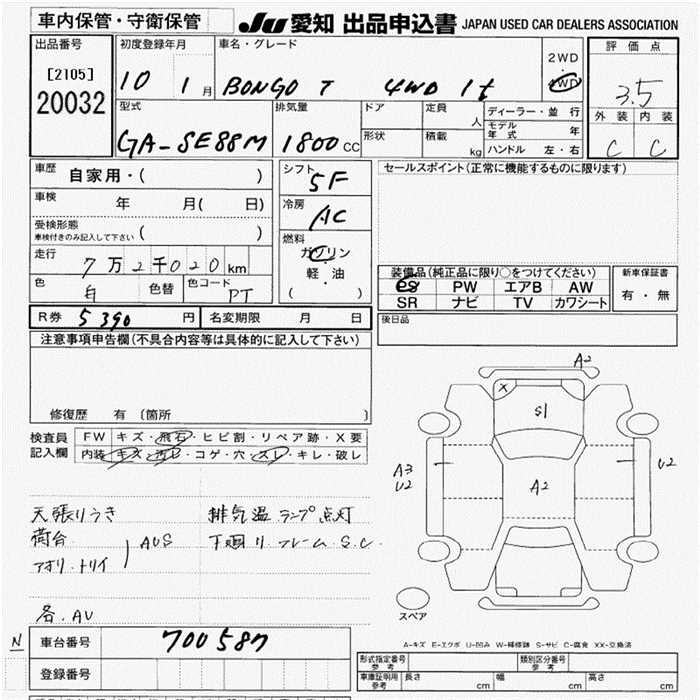 車内保管・守衛保管 JU 愛知 出品申込書 JAPAN USED CAR DEALERS ASSOCIATION
出品番号 初度登録年月 車名・グレード 2WD 4WD 評価点
[2105] 10 1月 BONGO T 4WD 1t 3.5
20032
型式 排気量 ドア 定員 人 ディーラー・並行 外装 内装
モデル年式 年
GA-SE88M 1800CC 形状 積載 kg ハンドル 左・右 C C
車歴 自家用・( ) シフト 5F セールスポイント(正常に機能するものに限ります)
車検 年 月( 日) 冷房 AC
受検形態 車検付きのみ記入して下さい ( )
燃料 ガソリン
走行 7万2千020km 軽・油 ( )
装備品(純正品に限り○をつけてください) 新車保証書
色 白 色替 色コード PT
PS PW エアB AW 有・無
SR ナビ TV カワシート
R券 5390円 名変期限 月 日 後日品
注意事項申告欄(不具合内容等は具体的に記入して下さい)
修復歴 有 〔箇所 〕
検査員記入欄 FW キズ・飛石・ヒビ割・リペア跡・X要
内装 キズ・汚レ・コゲ・穴・スレ・キレ・破レ
A2
X
S1
A3
U2
U2
A2
天張りうき 排気温ランプ点灯
荷台 AUS 下回り フレーム S.C.
アオリ・トリイ
各.AU
スペア
N 車台番号 700587
A-キズ E-エクボ U-凹み W-補修跡 S-サビ C-腐食 XX-交換済
登録番号
形式指定番号 参考 類別区分番号 参考
車庫証明用 参考 長さ cm 幅 cm 高さ cm